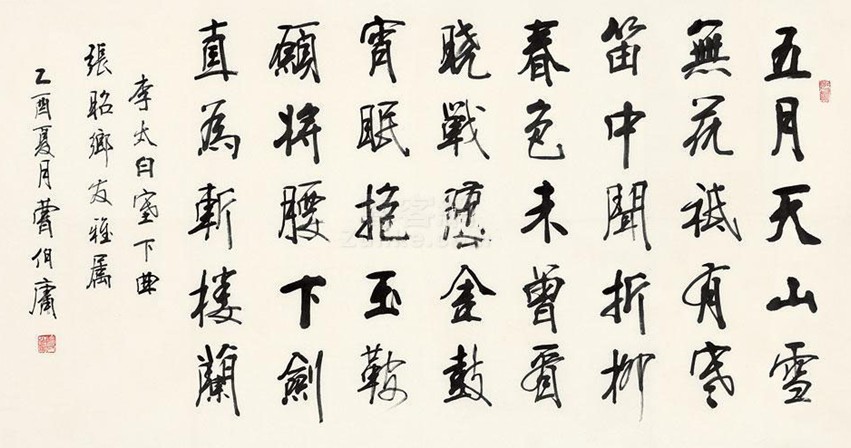 五月天山雪
無花祗有寒
笛中聞折柳
春色未曾看
晓戰隨金鼓
宵眠抱玉鞍
願将腰下劍
直為斬楼蘭
李太白塞下曲
張昭鄉友雅属
乙酉夏月曹伯庸